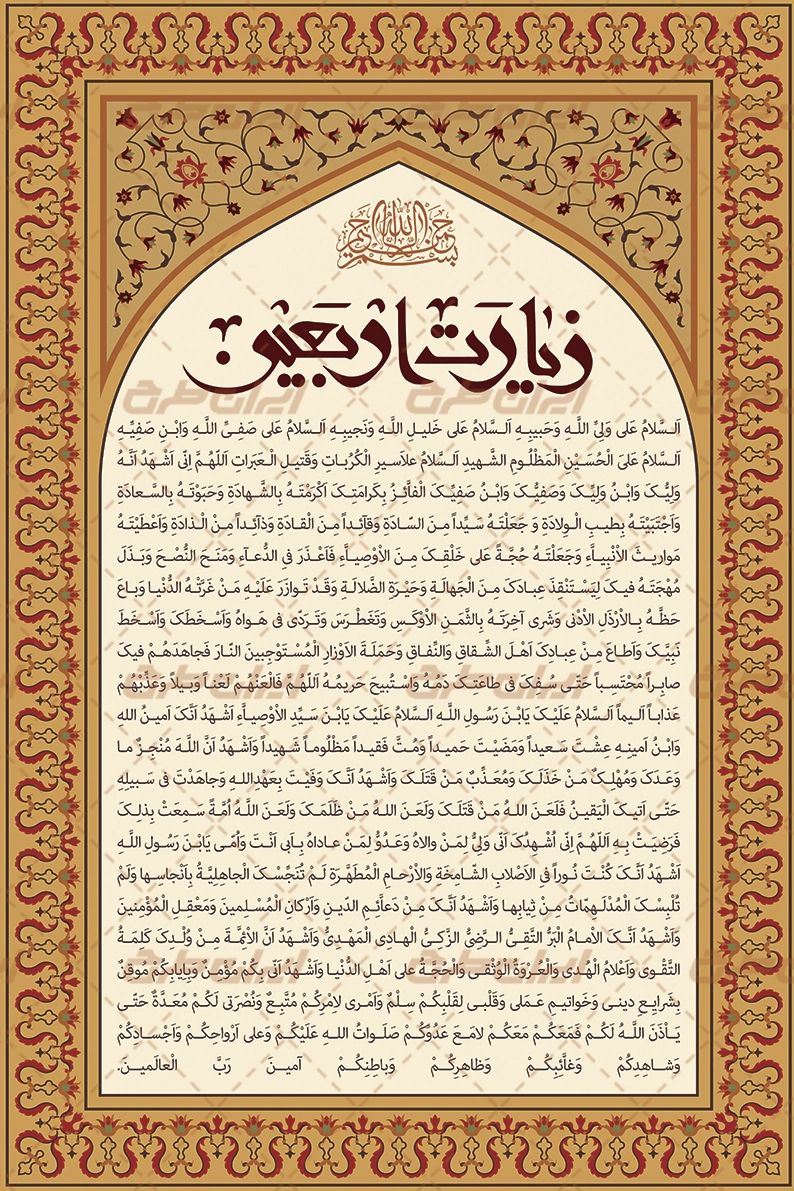 بسم الله الرحمن الرحیم
زیارت اربعین
اَلسَّلامُ عَلی وَلِیِّ اللَّهِ وَحَبیبِهِ اَلسَّلامُ عَلی خَلیلِ اللَّهِ وَنَجیبِهِ اَلسَّلامُ عَلی صَفِیِّ اللَّهِ وَابْنِ صَفِیِّهِ
اَلسَّلامُ عَلیَ الْحُسَیْنِ الْمَظْلُومِ الشَّهیدِ اَلسَّلامُ علاَسیرِ الْکُرُباتِ وَقَتیلِ الْعَبَراتِ اَللّهُمَّ اِنّی اَشْهَدُ اَنَّهُ
وَلِیُّکَ وَابْنُ وَلِیِّکَ وَصَفِیُّکَ وَابْنُ صَفِیِّکَ الْفاَّئِزُ بِکَرامَتِکَ اَکْرَمْتَهُ بِالشَّهادَةِ وَحَبَوْتَهُ بِالسَعادَةِ
وَاَجْتَبَیْتَهُ بِطیبِ الْوِلادَةِ وَ جَعَلْتَهُ سَیِّداً مِنَ السّادَةِ وَقآئِداً مِنَ الْقادَةِ وَذآئِداً مِنْ الْذادَةِ وَاَعْطَیْتَهُ
مَواریثَ الاْنْبِیاَّءِ وَجَعَلْتَهُ حُجَّةً عَلی خَلْقِکَ مِنَ الاْوْصِیاَّءِ فَاَعْذَرَ فیِ الدُّعآءِ وَمَنَحَ النُّصْحَ وَبَذَلَ
مُهْجَتَهُ فیکَ لِیَسْتَنْقِذَ عِبادَکَ مِنَ الْجَهالَةِ وَحَیْرَةِ الضَّلالَةِ وَقَدْ تَوازَرَ عَلَیْهِ مَنْ غَرَّتْهُ الدُّنْیا وَباعَ
حَظَّهُ بِالاْرْذَلِ الاْدْنی وَشَری آخِرَتَهُ بِالثَّمَنِ الاْوْکَسِ وَتَغَطْرَسَ وَتَرَدّی فی هَواهُ وَاَسْخَطَکَ وَاَسْخَطَ
نَبِیَّکَ وَاَطاعَ مِنْ عِبادِکَ اَهْلَ الشِّقاقِ وَالنِّفاقِ وَحَمَلَةَ الاْوْزارِ الْمُسْتَوْجِبینَ النّارَ فَجاهَدَهُمْ فیکَ
صابِراً مُحْتَسِباً حَتّی سُفِکَ فی طاعَتِکَ دَمُهُ وَاسْتُبیحَ حَریمُهُ اَللّهُمَّ فَالْعَنْهُمْ لَعْناً وَبیلاً وَعَذِّبْهُمْ
عَذاباً اَلیماً اَلسَّلامُ عَلَیْکَ یَابْنَ رَسُولِ اللَّهِ اَلسَّلامُ عَلَیْکَ یَابْنَ سَیِّدِ الاْوْصِیاَّءِ اَشْهَدُ اَنَّکَ اَمینُ الله
وَابْنُ اَمینِهِ عِشْتَ سَعیداً وَمَضَیْتَ حَمیداً وَمُتَّ فَقیداً مَظْلُوماً شَهیداً وَاَشْهَدُ اَنَّ اللَّهَ مُنْجِزٌ ما
وَعَدَکَ وَمُهْلِکٌ مَنْ خَذَلَکَ وَمُعَذِّبٌ مَنْ قَتَلَکَ وَاَشْهَدُ اَنَّکَ وَفَیْتَ بِعَهْدِاللهِ وَجاهَدْتَ فی سَبیلِهِ
حَتّی اَتیکَ الْیَقینُ فَلَعَنَ اللهُ مَنْ قَتَلَکَ وَلَعَنَ اللهُ مَنْ ظَلَمَکَ وَلَعَنَ اللَّهُ اُمَّةً سَمِعَتْ بِذلِکَ
فَرَضِیَتْ بِهِ اَللّهُمَّ اِنّی اُشْهِدُکَ اَنّی وَلِیٌّ لِمَنْ والاهُ وَعَدُوٌّ لِمَنْ عاداهُ بِاَبی اَنْتَ وَاُمّی یَابْنَ رَسُولِ اللَّه
اَشْهَدُ اَنَّکَ کُنْتَ نُوراً فیِ الاْصْلابِ الشّامِخَةِ وَالاْرْحامِ الْمُطَهَّرَةِ لَمْ تُنَجِّسْکَ الْجاهِلِیَّةُ بِاَنْجاسِها وَلَمْ
تُلْبِسْکَ الْمُدْلَهِمّاتُ مِنْ ثِیابِها وَاَشْهَدُ اَنَّکَ مِنْ دَعاَّئِمِ الدّینِ وَاَرْکانِ الْمُسْلِمینَ وَمَعْقِلِ الْمُؤْمِنینَ
وَاَشْهَدُ اَنَّکَ الاْمامُ الْبَرُّ التَّقِیُّ الرَّضِیُّ الزَّکِیُّ الْهادِی الْمَهْدِیُّ وَاَشْهَدُ اَنَّ الاْئِمَّةَ مِنْ وُلْدِکَ کَلِمَةُ
التَّقْوی وَاَعْلامُ الْهُدی وَالْعُرْوَةُ الْوُثْقی وَالْحُجَّةُ علی اَهْلِ الدُّنْیا وَاَشْهَدُ اَنّی بِکُمْ مُؤْمِنٌ وَبِاِیابِکُمْ مُوقِنٌ
بِشَرایِعِ دینی وَخَواتیمِ عَمَلی وَقَلْبی لِقَلْبِکُمْ سِلْمٌ وَاَمْری لاِمْرِکُمْ مُتَّبِعٌ وَنُصْرَتی لَکُمْ مُعَدَّةٌ حَتّی
یَاْذَنَ اللَّهُ لَکُمْ فَمَعَکُمْ مَعَکُمْ لامَعَ عَدُوِّکُمْ صَلَواتُ اللهِ عَلَیْکُمْ وَعلی اَرْواحِکُمْ وَاَجْسادِکُمْ
وَشاهِدِکُمْ وَغاَّئِبِکُمْ وَظاهِرِکُمْ وَباطِنِکُمْ آمینَ رَبَّ الْعالَمینَ.
ایران طرح